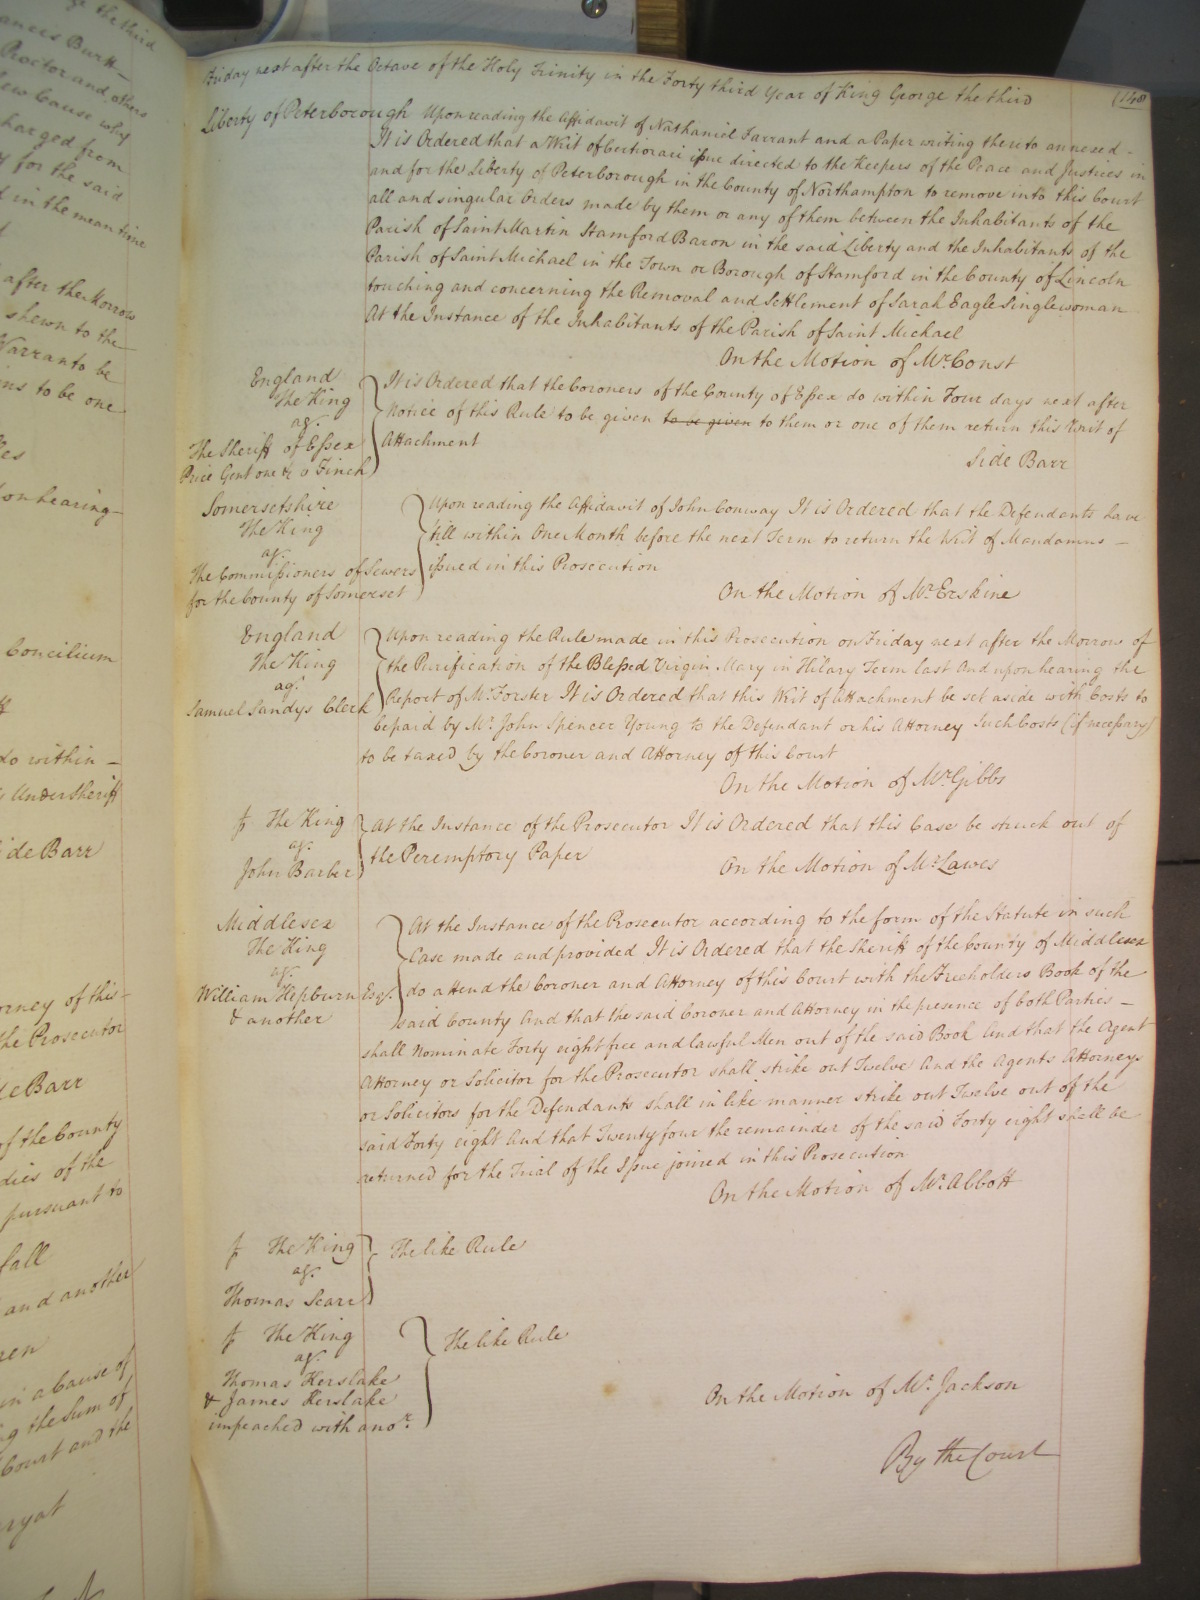 ge the third
ances Burtt
Proctor and others
ew Cause why
harged from
for the said
d in the mean time
after the Morrow
shewn to the
Warranto be
ins to be one
on hearing
Concilium
do within
y Undersheriff
ide Barr
orney of this
the Prosecutor
de Barr
of the County
dies of the
pursuant to
fall
and another
in a Cause of
g the Sum of
Court and the
Friday next after the Octave of the Holy Trinity in the Forty third Year of King George the third
(148)
Liberty of Peterborough Upon reading the Affidavit of Nathaniel Tarrant and a Paper writing thereto annexed
It is Ordered that a Writ of Certiorari issue directed to the Keepers of the Peace and Justices in
and for the Liberty of Peterborough in the County of Northampton to remove into this Court
all and singular Orders made by them or any of them between the Inhabitants of the
Parish of Saint Martin Stamford Baron in the said Liberty and the Inhabitants of the
Parish of Saint Michael in the Town or Borough of Stamford in the County of Lincoln
touching and concerning the Removal and Settlement of Sarah Eagle Singlewoman
At the Instance of the Inhabitants of the Parish of Saint Michael
On the Motion of Mr. Const
England
The King
agt.
The Sheriff of Essex
Price Gent one &c v Finch
It is Ordered that the Coroners of the County of Essex do within Four days next after
Notice of this Rule to be given to be given to them or one of them return this Writ of
Attachment
Side Barr
Somersetshire
The King
agt.
The Commissioners of Sewers
for the County of Somerset
Upon reading the Affidavit of John Conway It is Ordered that the Defendants have
till within One Month before the next Term to return the Writ of Mandamus
issued in this Prosecution
On the Motion of Mr. Erskine
England
The King
agt.
Samuel Sandys Clerk
Upon reading the Rule made in this Prosecution on Friday next after the Morrow of
the Purification of the Blessed Virgin Mary in Hilary Term last And upon hearing the
Report of Mr. Forster It is Ordered that this Writ of Attachment be set aside with Costs to
be paid by Mr. John Spencer Young to the Defendant or his Attorney Such Costs (if necessary)
to be taxed by the Coroner and Attorney of this Court
On the Motion of Mr. Gibbs
The King
agt.
John Barber
At the Instance of the Prosecutor It is Ordered that this Case be struck out of
the Peremptory Paper
On the Motion of Mr. Lawes
Middlesex
The King
agt.
William Hepburn Esqr.
& another
At the Instance of the Prosecutor according to the form of the Statute in such
Case made and provided It is Ordered that the Sheriff of the County of Middlesex
do attend the Coroner and Attorney of this Court with the Freeholders Book of the
said County And that the said Coroner and Attorney in the presence of both Parties
shall Nominate Forty eight free and lawful Men out of the said Book And that the Agent
Attorney or Solicitor for the Prosecutor shall strike out Twelve And the Agents Attorneys
or Solicitors for the Defendants shall in like manner strike out Twelve out of the
said Forty eight And that Twenty four the remainder of the said Forty eight shall be
returned for the Trial of the Issue joined in this Prosecution
On the Motion of Mr. Abbott
The King
agt.
Thomas Scarr
The like Rule
The King
agt.
Thomas Kerslake
& James Kerslake
impeached with anor.
The like Rule
On the Motion of Mr. Jackson
By the Court